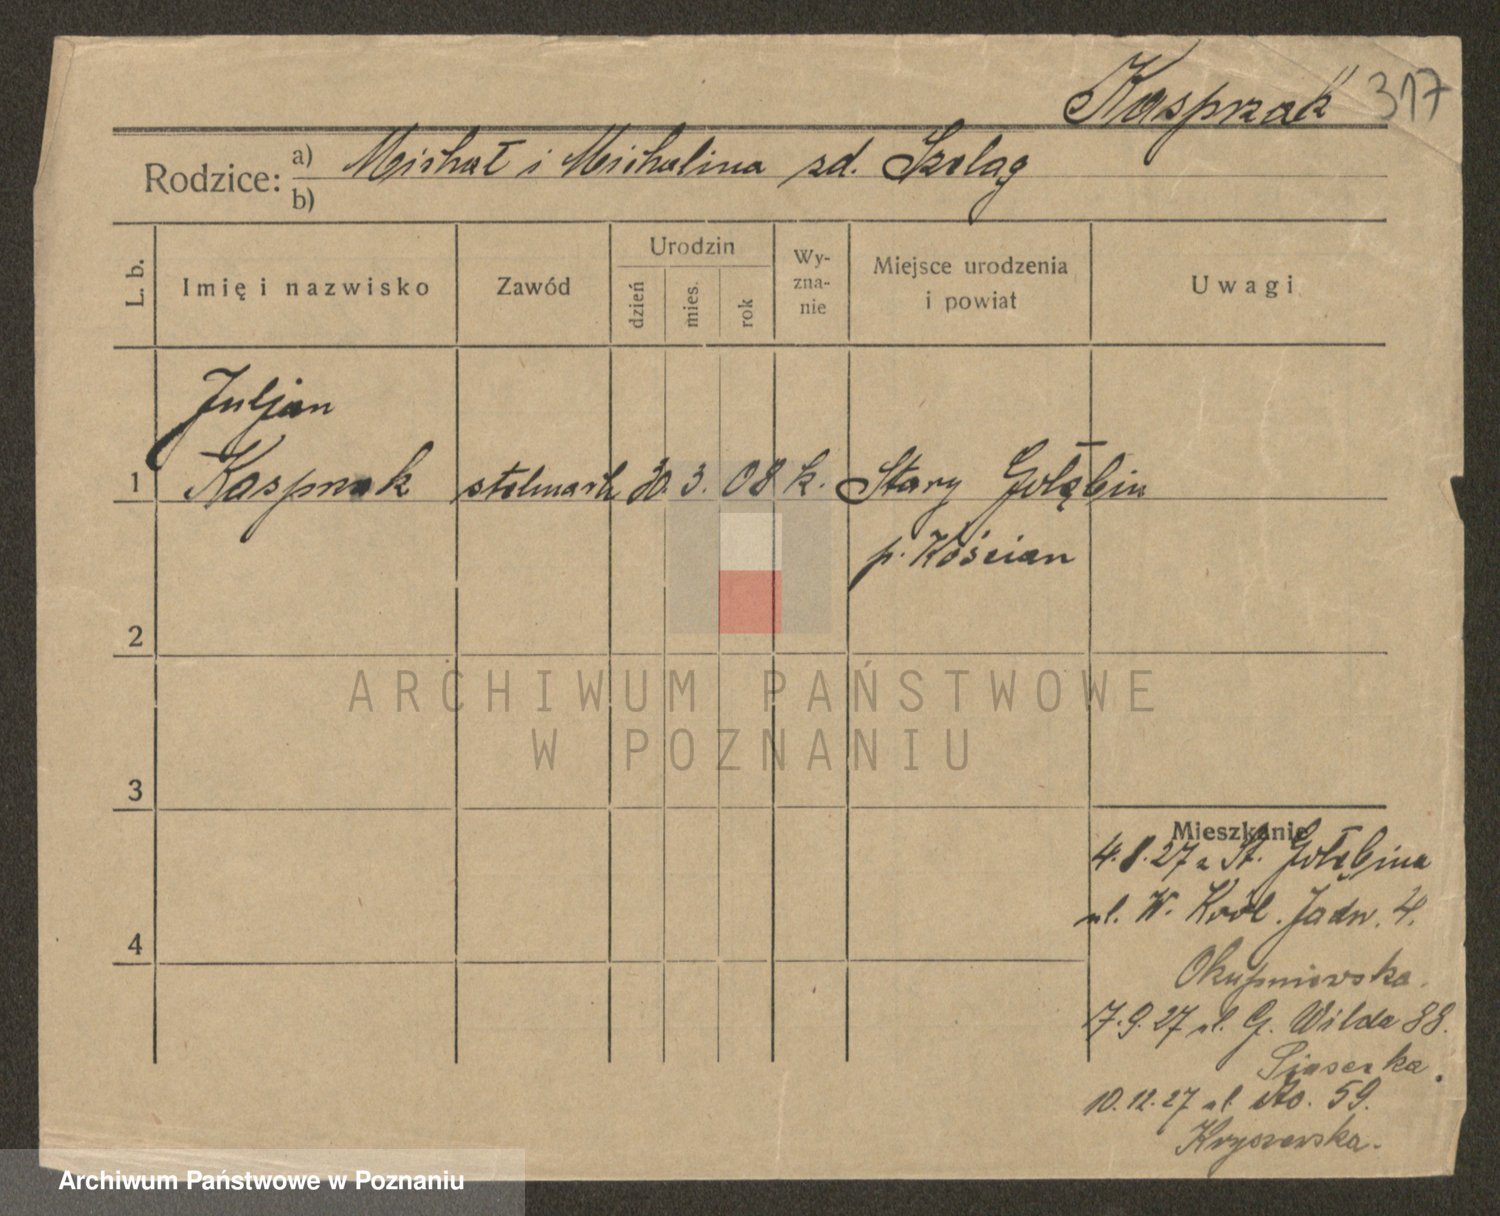 Kasprzak 317
Rodzice: a) Michał i Michalina zd. Szeląg
b)
L. b. Imię i nazwisko Zawód Urodzin dzień mies. rok Wy-zna-nie Miejsce urodzenia i powiat Uwagi
Juljan
1 Kasprzak stelmach 30. 3. 08 k. Stary Gołębin
p. Kościan
2
ARCHIWUM PAŃSTWOWE
W POZNANIU
3
Mieszkanie
4.8.27 z St. Gołębina
ul. W. Król. Jadw. 4.
4
Okupniewska.
7.9.27 ul. G. Wilda 88.
10.12.27 ul. 59.
Kryszewska.
Archiwum Państwowe w Poznaniu